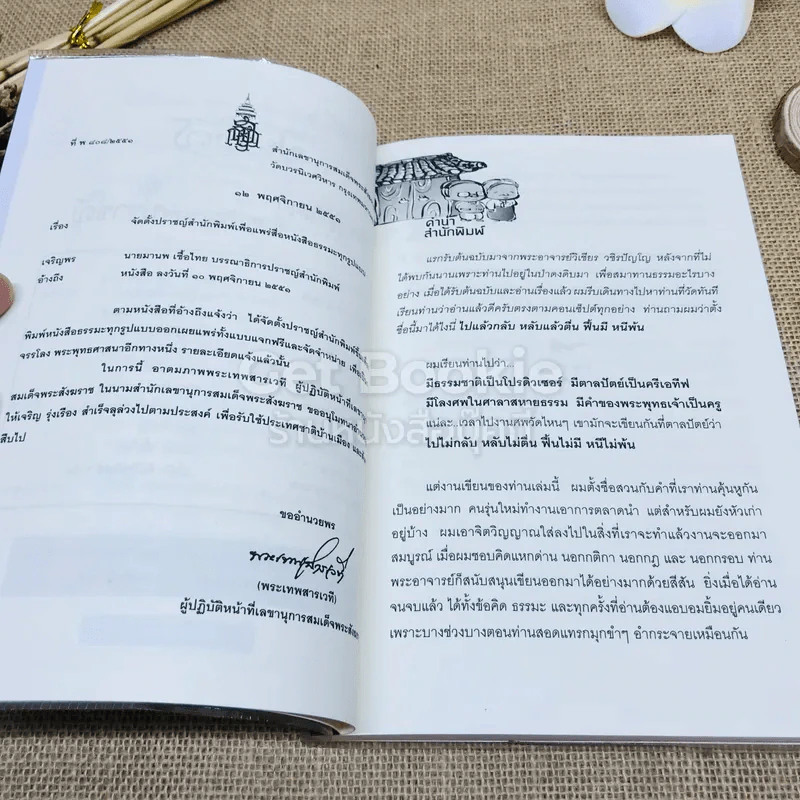 ที่ พ ๘๐๘/๒๕๕๑
สำนักเลขานุการสมเด็จพระสัง
วัดบวรนิเวศวิหาร
๑๒ พฤศจิกายน ๒๕๕๑
เรื่อง จัดตั้งปราชญ์สำนักพิมพ์เพื่อแพร่สื่อหนังสือธรรมะทุกรูปแบบ
เจริญพร นายมานพ เชื้อไทย บรรณาธิการปราชญ์สำนักพิมพ์
อ้างถึง หนังสือ ลงวันที่ ๑๐ พฤศจิกายน ๒๕๕๑
ตามหนังสือที่อ้างถึงแจ้งว่า ได้จัดตั้งปราชญ์สำนักพิมพ์ขึ้น
พิมพ์หนังสือธรรมะทุกรูปแบบออกเผยแพร่ ทั้งแบบแจกฟรีและจัดจำหน่าย
จรรโลง พระพุทธศาสนาอีกทางหนึ่ง รายละเอียดแจ้งแล้วนั้น
ในการนี้ อาตมภาพพระเทพสารเวที ผู้ปฏิบัติหน้าที่เลขา
สมเด็จพระสังฆราช ในนามสำนักเลขานุการสมเด็จพระสังฆราช ขออนุโมทนา
ให้เจริญ รุ่งเรือง สำเร็จลุล่วงไปตามประสงค์ เพื่อรับใช้ประเทศชาติบ้านเมือง
สืบไป
ขออำนวยพร
(พระเทพสารเวที)
ผู้ปฏิบัติหน้าที่เลขานุการสมเด็จพระสังฆ
คำนำ
สำนักพิมพ์
แรกรับต้นฉบับมาจากพระอาจารย์วิเชียร วชิรปัญโญ หลังจากที่ไม่
ได้พบกันนานเพราะท่านไปอยู่ในป่าดงดิบมา เพื่อสมาทานธรรมอะไรบาง
อย่าง เมื่อได้รับต้นฉบับและอ่านเรื่องแล้ว ผมรีบเดินทางไปหาท่านที่วัดทันที
เรียนท่านว่าอ่านแล้วดีครับตรงตามคอนเซ็ปต์ทุกอย่าง ท่านถามผมว่าตั้ง
ชื่อนี้มาได้ไงนี่ ไปแล้วกลับ หลับแล้วตื่น ฟื้นมี หนีพ้น
ผมเรียนท่านไปว่า...
มีธรรมชาติเป็นโปรดิวเซอร์ มีตาลปัตย์เป็นครีเอทีฟ
มีโลงศพในศาลาสหายธรรม มีคำของพระพุทธเจ้าเป็นครู
แน่ละ...เวลาไปงานศพวัดไหนๆ เขามักจะเขียนกันที่ตาลปัตย์ว่า
ไปไม่กลับ หลับไม่ตื่น ฟื้นไม่มี หนีไม่พ้น
แต่งานเขียนของท่านเล่มนี้ ผมตั้งชื่อสวนกับคำที่เราท่านคุ้นหูกัน
เป็นอย่างมาก คนรุ่นใหม่ทำงานเอาการตลาดนำ แต่สำหรับผมยังหัวเก่า
อยู่บ้าง ผมเอาจิตวิญญาณใส่ลงไปในสิ่งที่เราจะทำแล้วงานจะออกมา
สมบูรณ์ เมื่อผมชอบคิดแหกด่าน นอกกติกา นอกกฎ และ นอกกรอบ ท่าน
พระอาจารย์ก็สนับสนุนเขียนออกมาได้อย่างมากด้วยสีสัน ยิ่งเมื่อได้อ่าน
จนจบแล้ว ได้ทั้งข้อคิด ธรรมะ และทุกครั้งที่อ่านต้องแอบอมยิ้มอยู่คนเดียว
เพราะบางช่วงบางตอนท่านสอดแทรกมุกขำๆ อำกระจายเหมือนกัน
Get Bookie
ร้านหนังสือกุ๊กกี้